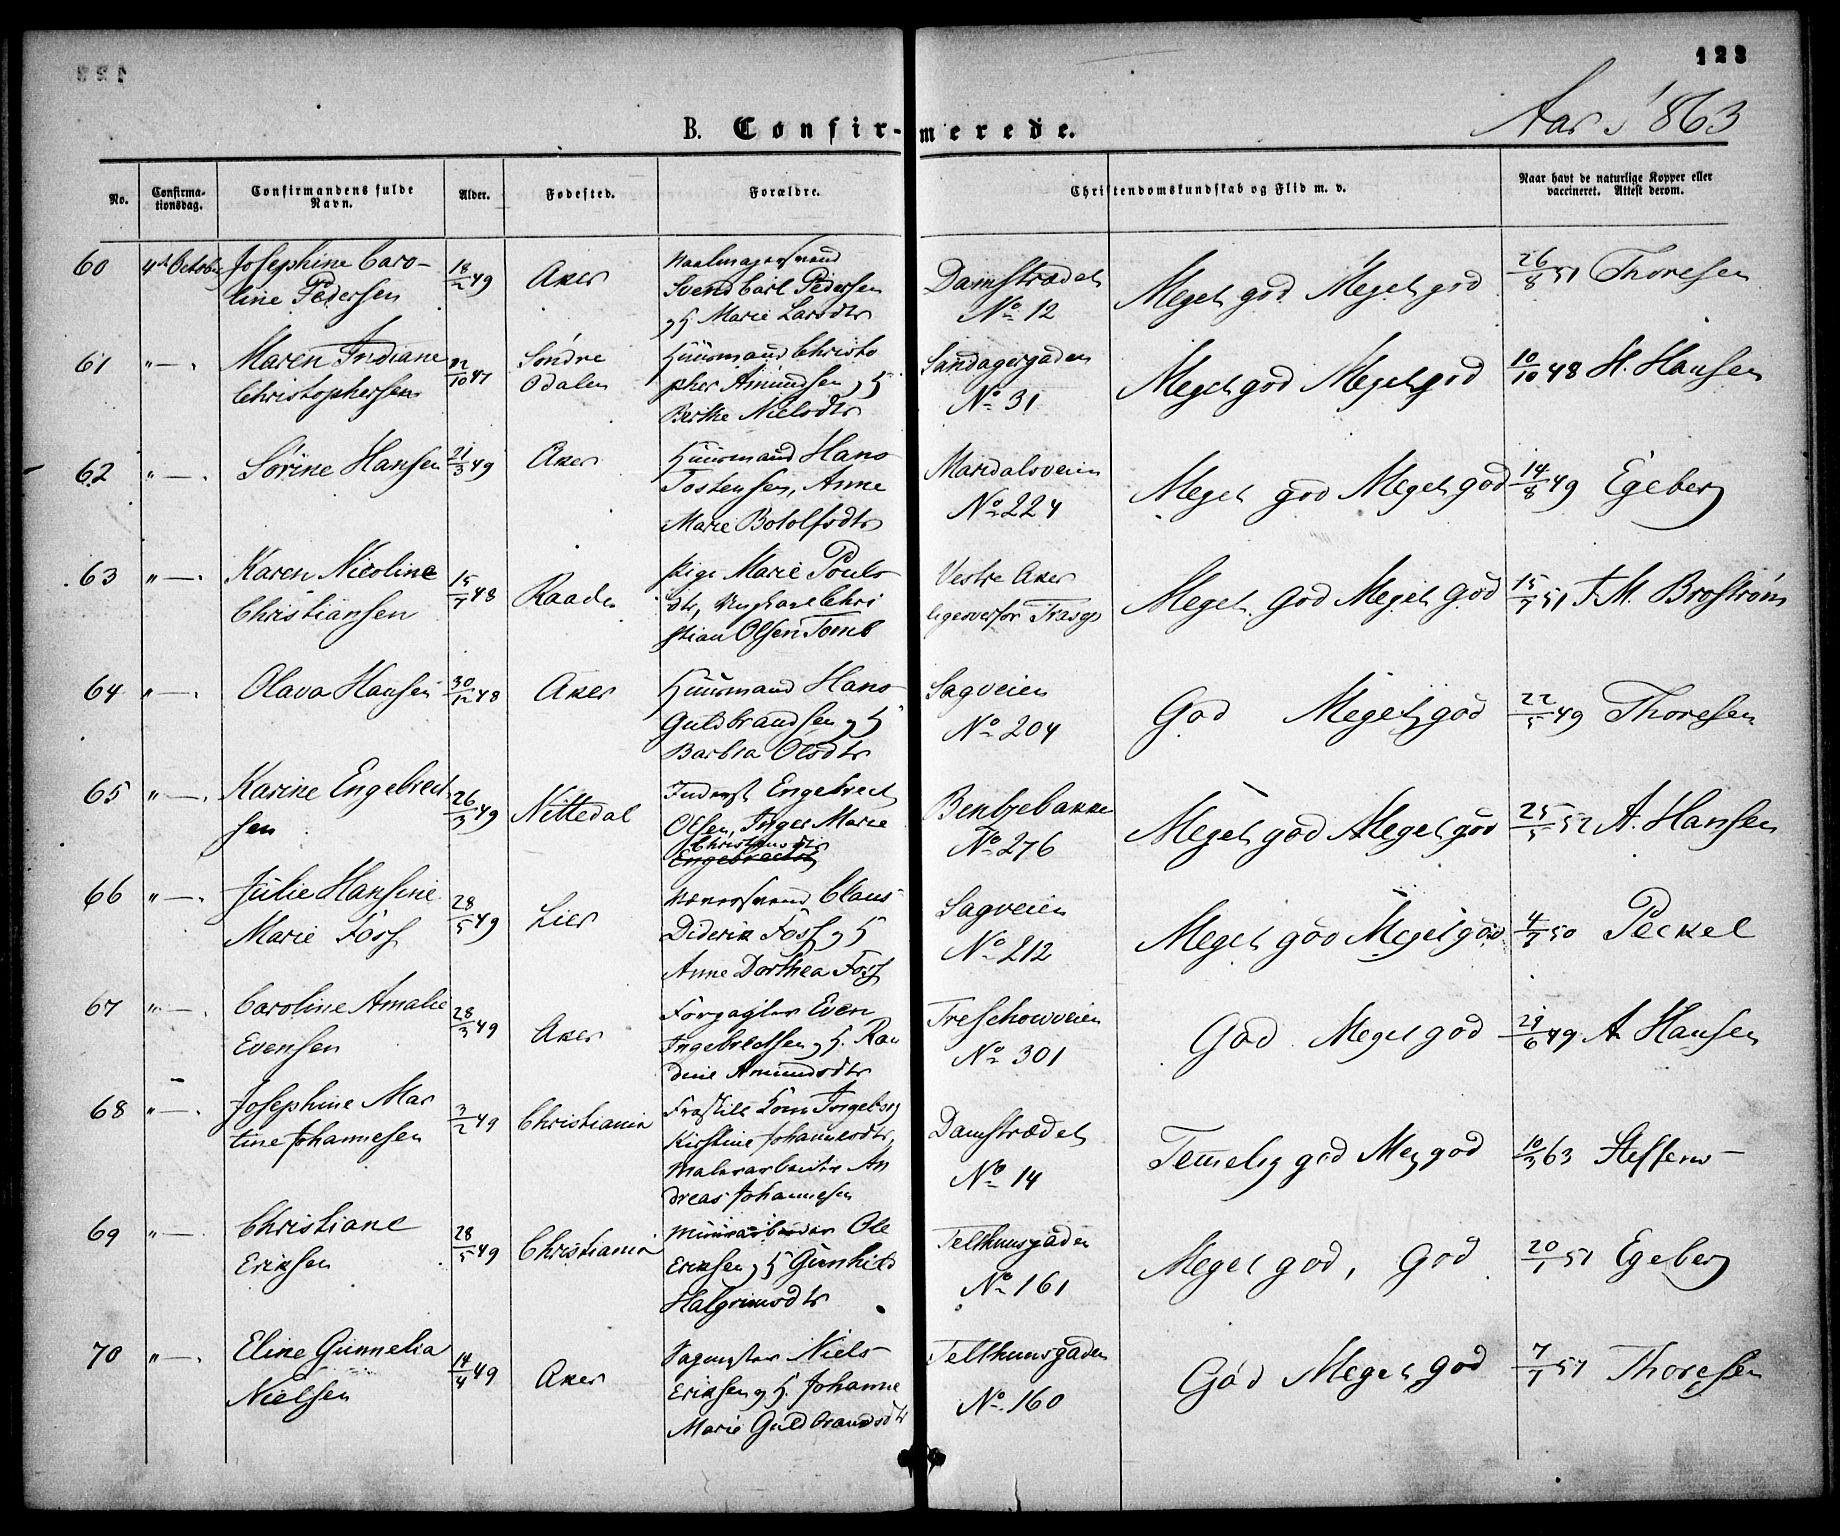 123
Aar 1863
B. Confirmerede.
No. Confirmationsdag. Confirmandens fulde Navn. Alder. Fødested. Forældre. Christendomskundskab og Flid m. v. Naar havt de naturlige Kopper eller vaccineret. Attest derom.
60 4de October Josephine Caro-
line Pedersen
18/2 49 Aker
Svend Carl Pedersen
og H Marie Larsdtr
Damstrædet
No 12
Meget god Meget god 26/8 51 Thoresen
61 "—. Maren Indiane
Christophersen
/10 47 Søndre
Odalen
Huusmand Christo
pher Amundsen og H
Berthe Nielsdtr
Sandagergaden
No 31
Meget god Meget god 10/10 48 H. Hansen
62 "—. Sørine Hansen 21/3 49 Aker
Huusmand Hans
Tostensen, Anne
Marie Botolfsdtr
Maridalsveien
No 224
Meget god Meget god 14/8 49 Egeberg
63 "—. Karen Nicoline
Christiansen
15/7 48 Raade
Pige Marie Pouls
dtr, Ungkarl Chri
stian Olsen Tomb
Vestre Aker
ligeoverfor
Meget god Meget god 15/7 51 F. M. Brostrøm
64 "—. Olava Hansen 30/12 48 Aker
Huusmand Hans
Guldbrandsen og H
Barbra Olsdtr
Sagveien
No 204
God Meget god 22/5 49 Thoresen
65 "—. Karine Engebret
sen
26/3 49 Nittedal
Inderst Engebret
Olsen, Inger Marie
Christensdtr
Engebretsd
Bentzebakke
No 276
Meget god Meget god 25/5 52 A. Hansen
66 "—. Julie Hansine
Marie Foss
28/5 49 Lier
Claus
Diderik Foss og H
Anne Dorthea Foss
Sagveien
No 212
Meget god Meget god 4/7 50 Peckel
67 "—. Caroline Amalie
Evensen
28/3 49 Aker
Forpagter Even
Ingebretsen og H. Ran
dine Amundsdtr
Treschowveien
No 301
God Meget god 29/6 49 A Hansen
68 "—. Josephine Mar
tine Johannesen
3/2 49 Christiania
Fraskilt Kone Ingeborg
Kirstine Johannesdtr,
Malerarbeider An
dreas Johannesen
Damstrædet
No 14
Temelig god Meg god 10/3 63 Steffens
69 "—. Christiane
Eriksen
28/5 49 Christiania
Muurarbeider Ole
Eriksen og H Gunhild
Halgrimsdtr
Telthuusgaden
No 161
Meget god, God 20/1 51 Egeberg
70 "—. Eline Gunnelia
Nielsen
14/4 49 Aker
Niels
Eriksen og H. Johanne
Marie Guldbrandsdtr
Telthuusgaden
No. 160
God Meget god 7/7 51 Thoresen